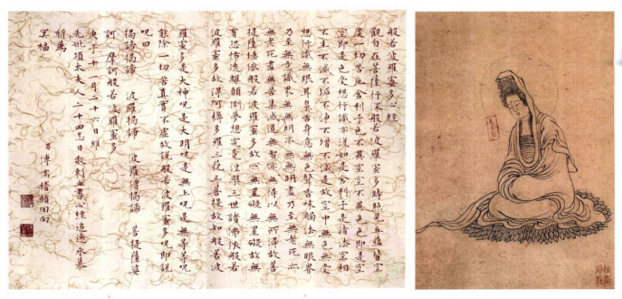 般若波羅蜜多心經
觀自在菩薩行深般若波羅蜜多時照見五蘊皆空
度一切苦厄舍利子色不異空空不異色色即是空
空即是色受想行識亦復如是舍利子是諸法空相
不生不滅不垢不淨不增不減是故空中無色無受
想行識無眼耳鼻舌身意無色聲香味觸法無眼界
乃至無意識界無無明亦無無明盡乃至無老死亦
無老死盡無苦集滅道無智亦無得以無所得故菩
提薩埵依般若波羅蜜多故心無罣礙無罣礙故無
有恐怖遠離顛倒夢想究竟涅槃三世諸佛依般若
波羅蜜多故得阿耨多羅三藐三菩提故知般若波
羅蜜多是大神呪是大明呪是無上呪是無等等呪
能除一切苦真實不虛故說般若波羅蜜多呪即說
呪曰
揭諦揭諦 波羅揭諦 波羅僧揭諦 菩提薩婆
訶 摩訶般若波羅蜜多
庚子十一月二十六日維
先妣項太夫人二十四忌日敬刺血書心經追遠永慕
祈薦
冥福
稽顙回向